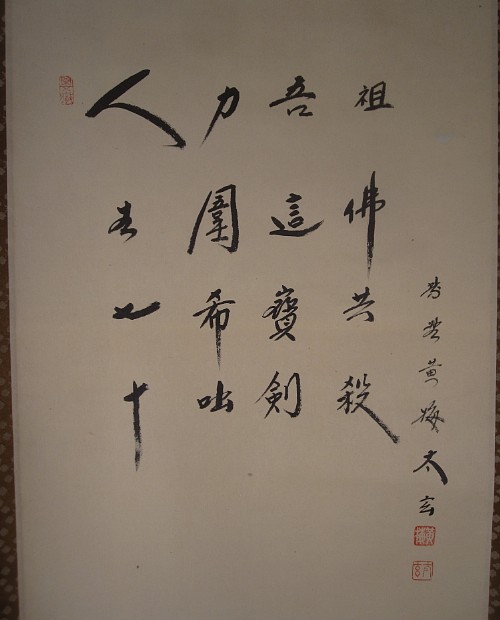 人生七十
力圍希咄
吾這寶剣
祖佛共殺
黄梅太玄